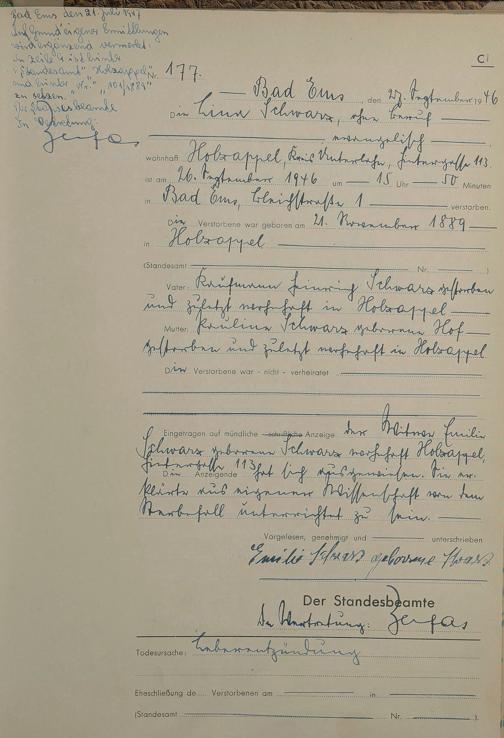 Bad Ems den 21. Juli 1947
Auf Grund eigener Ermittlungen
wird ergänzend vermerkt:
in Zeile 9 ist hinter
"Standesamt" "Holzappel"
und hinter "Nr." "101/1889"
zu setzen.
Der Standesbeamte
In Vertretung:
Zerfas
C
Nr. 177.
Bad Ems, den 27. September 1946
Die Lina Schwarz, ohne Beruf
evangelisch
wohnhaft Holzappel, Kreis Unterlahn, Hintergasse 113
ist am 26. September 1946 um 15 Uhr 50 Minuten
in Bad Ems, Bleichstraße 1 verstorben.
Die Verstorbene war geboren am 21. November 1889
in Holzappel
(Standesamt Nr. )
Vater: Kaufmann Heinrich Schwarz gestorben
und zuletzt wohnhaft in Holzappel
Mutter: Pauline Schwarz geborene Hof
gestorben und zuletzt wohnhaft in Holzappel
Die Verstorbene war - nicht - verheiratet
Eingetragen auf mündliche schriftliche Anzeige der Witwe Emilie
Schwarz geborene Schwarz wohnhaft Holzappel,
Hintergasse 113
Die Anzeigende hat sich ausgewiesen. Sie er-
klärte aus eigener Wissenschaft von dem
Sterbefall unterrichtet zu sein.
Vorgelesen, genehmigt und unterschrieben
Emilie Schwarz geborene Schwarz
Der Standesbeamte
In Vertretung: Zerfas
Todesursache: Leberentzündung
Eheschließung de Verstorbenen am in
(Standesamt Nr. ).